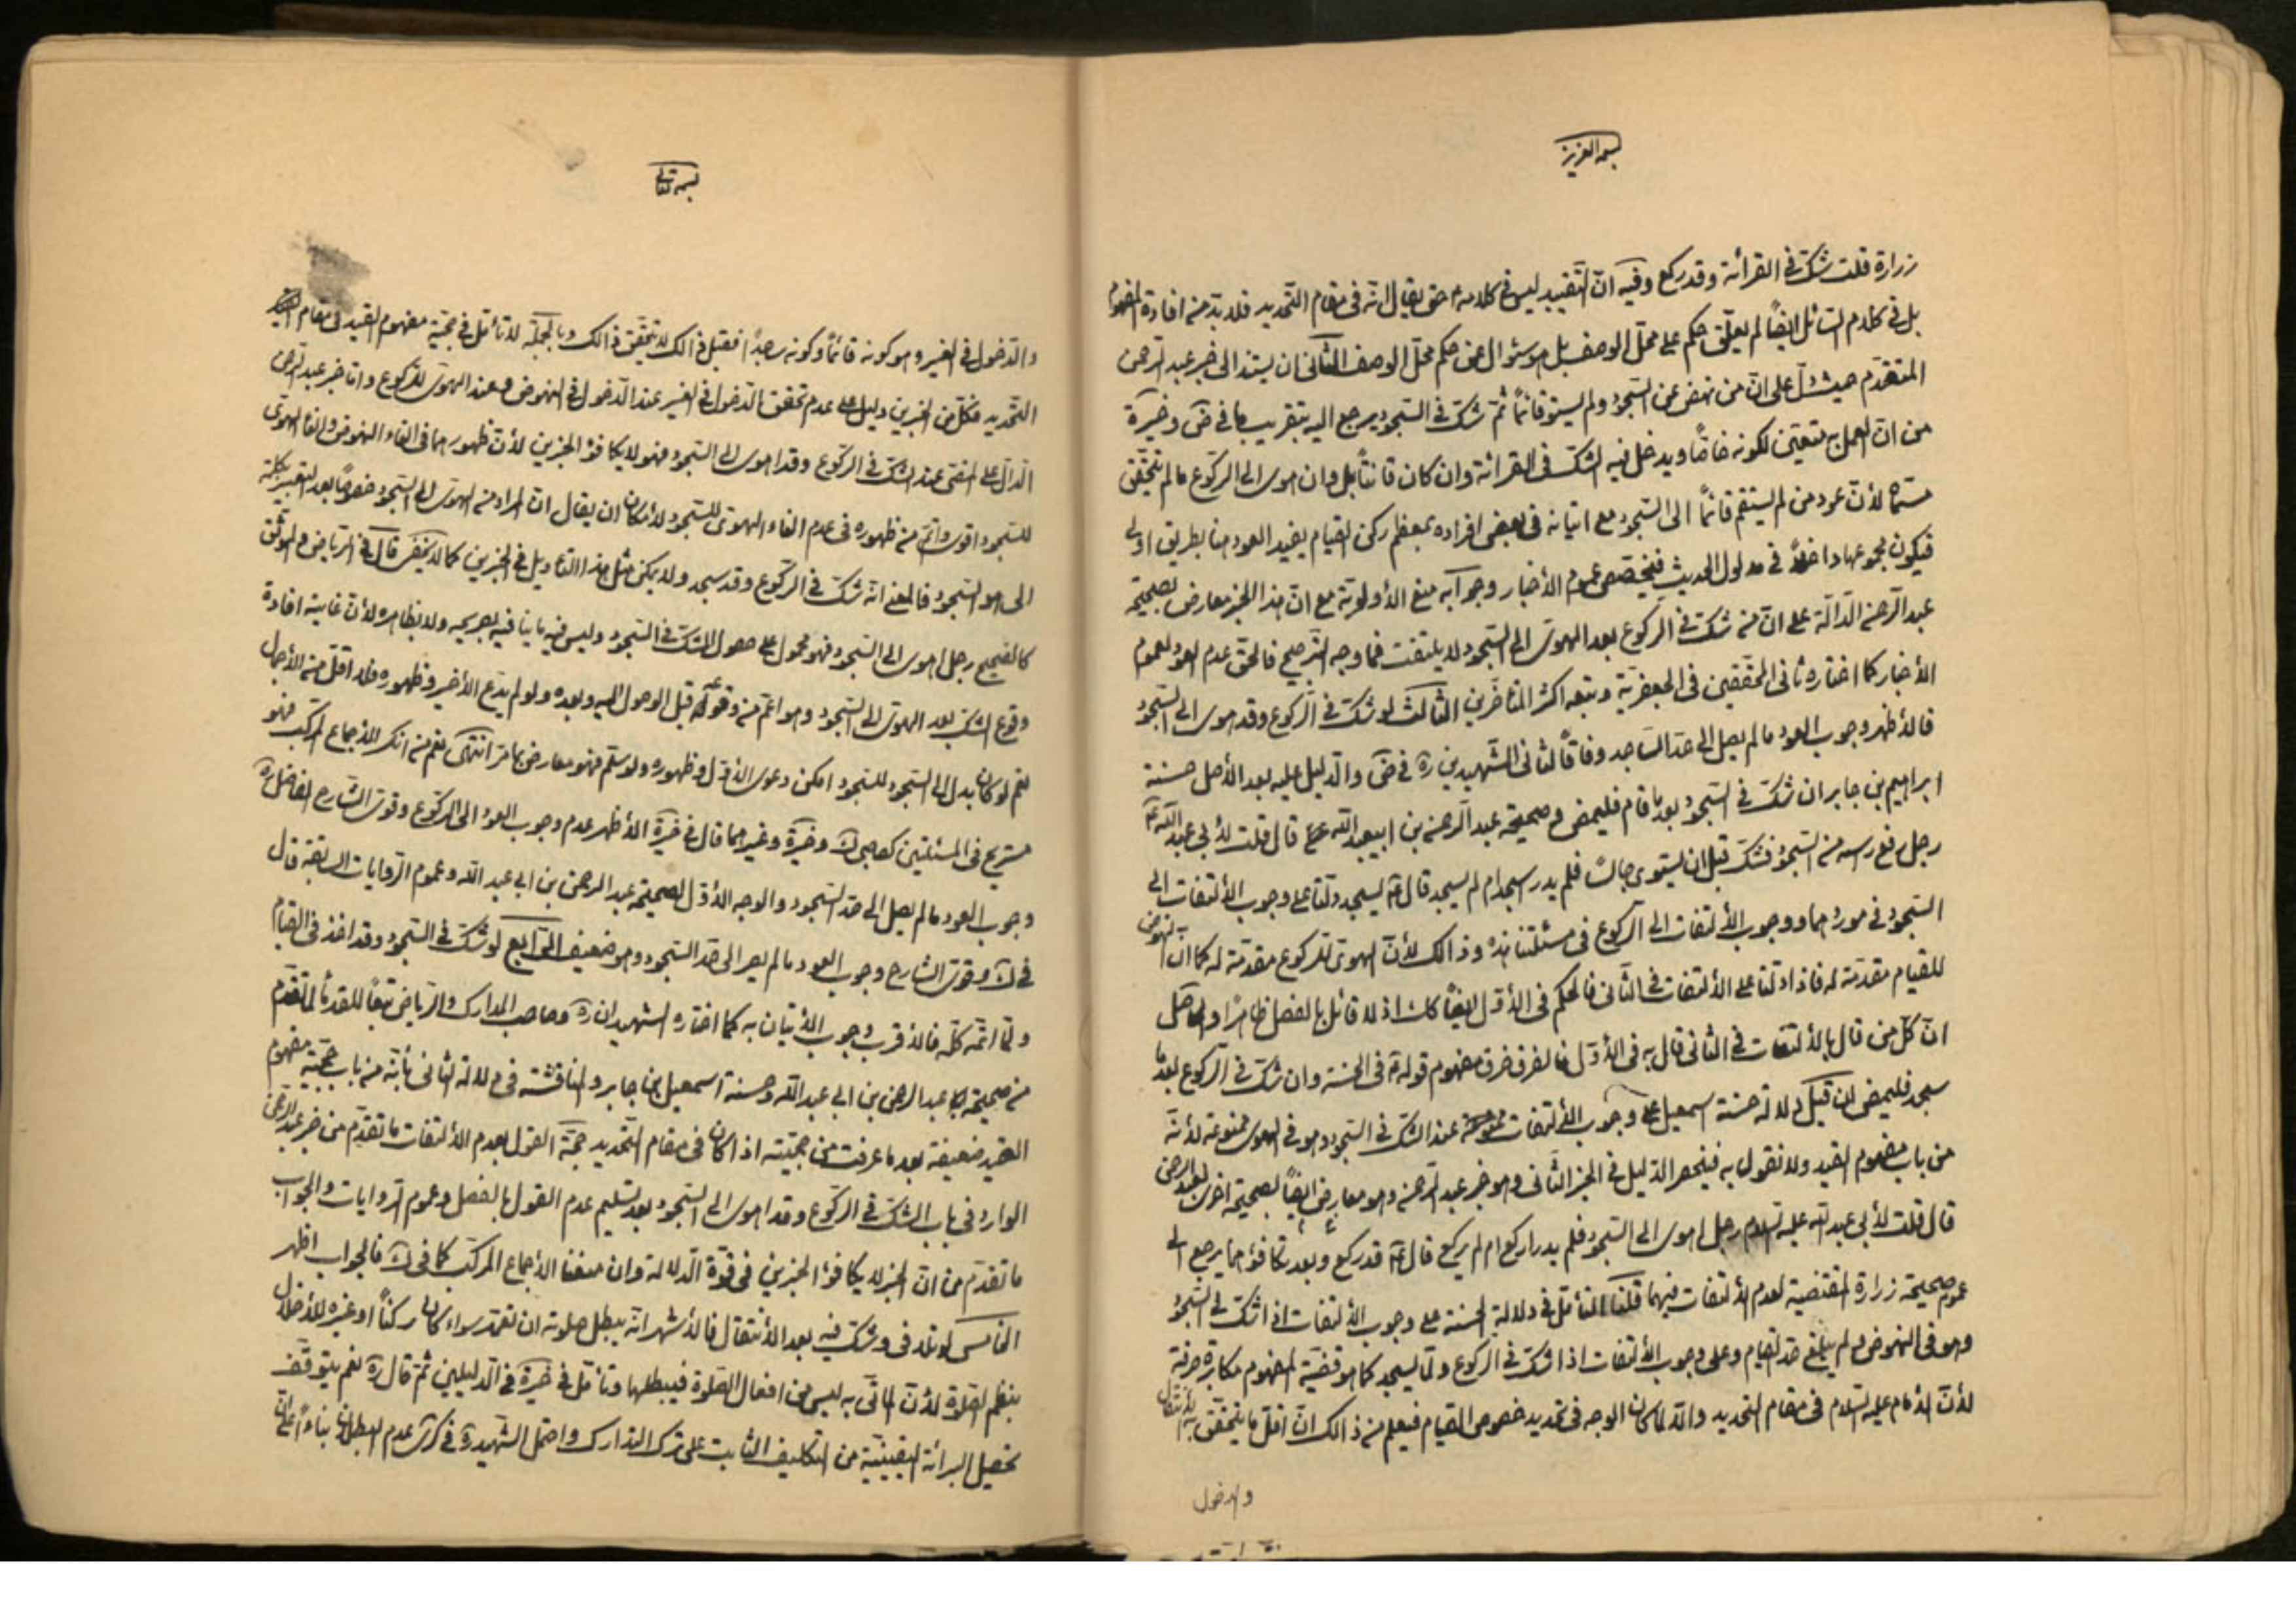 بسمه العزيز
زرارة قلت شك في القرائة وقد ركع وفيه ان التقييد ليس في كلامه حتى يقال انه في مقام التحديد فلا بد منه افادة المفهوم
بل في كلام السائل ايضاً لم يعلق حكم على محل الوصف بل هو سئوال عن حكم محل الوصف الثانى ان يستند الى خبر عبد الرحمن
المتقدم حيث دل على ان من نهض عن السجود ولم يستو قائماً ثم شك في السجود يرجع اليه بتقريب ما في ض وخيرة
من ان العمل به متعين لكونه خاصاً ويدخل فيه الشك فى القرائة وان كان قانتاً بل وان هوى الى الركوع ما لم يتحقق
مسماه لأن عود من لم يستقم قائماً الى السجود مع اتيانه فى بعض افراده بمعظم ركن القيام يفيد العود هنا بطريق اولى
فيكون مجموعها داخلاً في مدلول الحديث فيخصص عموم الأخبار وجوابه منع الأولوية مع ان هذا الخبر معارض بصحيحة
عبد الرحمن الدالة على ان من شك في الركوع بعد الهوى الى السجود لا يلتفت فما وجه الترجيح فالحق عدم العود لعموم
الأخبار كما اختاره ثانى المحققين فى الجعفرية وتبعه اكثر المتأخرين الثالث لو شك في الركوع وقد هوى الى السجود
فالأظهر وجوب العود ما لم يصل الى حد الساجد وفاقاً لثانى الشهيدين ره في ض والدليل عليه بعد الأصل حسنة
ابراهيم بن جابر ان شك في السجود بعد ما قام فليمض وصحيحة عبد الرحمن بن ابيعبد الله قال قلت لأبي عبد الله ع
رجل رفع رأسه من السجود فشك قبل ان يستوى جالساً فلم يدر اسجد ام لم يسجد قال ع يسجد دلتا على وجوب الألتفات الى
السجود في موردهما ووجوب الألتفات الى الركوع فى مسئلتنا هذه وذالك لأن الهوى للركوع مقدمة له كما ان النهوض
للقيام مقدمة له فاذا دلتا على الألتفات في الثانى فالحكم فى الأول ايضاً كك اذ لا قائل بالفصل ظاهراً والحاصل
ان كل من قال بالألتفات في الثانى قال به فى الأول فالفرق خرق مفهوم قوله ع فى الحسنة وان شك في الركوع بعد ما
سجد فليمض لان قيل دلالة حسنة اسمعيل على وجوب الألتفات عند الشك في السجود وهو في الهوى ممنوعة لأنه
من باب مفهوم القيد ولا نقول به فينحصر الدليل في الخبر الثانى وهو خبر عبد الرحمن وهو معارض ايضاً بصحيحة اخرى لعبد الرحمن
قال قلت لأبي عبد الله عليه السلام رجل اهوى الى السجود فلم يدر اركع ام لم يركع قال ع قد ركع وبعد تكافؤهما يرجع الى
عموم صحيحة زرارة المقتضية لعدم الألتفات فيهما قلنا التأمل في دلالة الحسنة على وجوب الألتفات اذا شك في السجود
وهو فى النهوض ولم يبلغ حد القيام وعلى وجوب الألتفات اذا شك في الركوع ولما يسجد كما هو قضية المفهوم مكابرة صرفة
لأن الأمام عليه السلام فى مقام التحديد والا لما كان الوجه في تحديد خصوص القيام فيعلم من ذالك ان اقل ما يتحقق به الأنتقال
والدخول
بسمه تعالى
والدخول في الغير وهو كونه قائماً وكونه ساجداً فقبل ذالك لا يتحقق ذالك وبالجملة لا تأمل في حجية مفهوم القيد فى مقام
التحديد فكل من الخبرين دليل على عدم تحقق الدخول في الغير عند الدخول في النهوض وعند الهوى للركوع واما خبر عبد الرحمن
الدال على المضى عند الشك في الركوع وقد اهوى الى السجود فهو لا يكافؤ الخبرين لأن ظهورهما فى الغاء النهوض والغاء الهوى
للسجود اقوى واتم من ظهوره في عدم الغاء الهوى للسجود لأمكان ان يقال ان المراد منه الهوى الى السجود خصوصاً بعد التعبير بكلمة
الى هو السجود فالمعنى انه شك في الركوع وقد سجد ولا يمكن مثل هذا التأويل في الخبرين كما لا يخفى قال في الرياض والموثق
كالصحيح رجل اهوى الى السجود فهو محمول على حصول الشك في السجود وليس فيه ما ينافيه بصريحه ولا بظاهره لأن غايته افادة
وقوع الشك بعد الهوى الى السجود وهو اعم من وقوعه قبل الوصول اليه وبعده ولو لم يدع الأخير وظهوره فلا اقل من الأجمال
نعم لو كان بدل الى السجود للسجود امكن دعوى الأول وظهوره ولو سلم فهو معارض بما مر انتهى نعم من انكر الأجماع المركب فهو
مستريح فى المسئلتين كصاحب ك وخيرة وغيرهما قال في خيرة الأظهر عدم وجوب العود الى الركوع وقوى الشارح الفاضل ره
وجوب العود ما لم يصل الى حد السجود والوجه الأول لصحيحة عبد الرحمن بن ابي عبد الله وعموم الروايات السابقة قال
في ك وقوى الشارح وجوب العود ما لم يصر الى حد السجود وهو ضعيف الرابع لو شك في السجود وقد اخذ فى القيام
ولما اتمه كله فالأقرب وجوب الأتيان به كما اختاره الشهيدان ره وصاحب المدارك والرياض تبعاً للقدماء لما تقدم
من صحيحة عبد الرحمن بن ابي عبد الله وحسنة اسمعيل بن جابر والمناقشة فى دلالة الثانى بأنه من باب حجية مفهوم
القيد ضعيفة بعد ما عرفت من حجيته اذا كان فى مقام التحديد حجة القول بعدم الألتفات ما تقدم من خبر عبد الرحمن
الوارد فى باب الشك في الركوع وقد اهوى الى السجود بعد تسليم عدم القول بالفصل وعموم الروايات والجواب
ما تقدم من ان الخبر لا يكافؤ الخبرين في قوة الدلالة وان منعنا الأجماع المركب كما في ك فالجواب اظهر
الخامس لو تلافى وشك فيه بعد الأنتقال فالأشهر انه يبطل صلوته ان تعمد سواء كان ركناً او غيره للأخلال
بنظم الصلوة لأن المأتى به ليس من افعال الصلوة فيبطلها وتأمل في خيرة في الدليلين ثم قال ره نعم يتوقف
تحصيل البرائة اليقينية من التكليف الثابت على ترك التدارك واحتمل الشهيد ره في كرى عدم البطلان بناءاً على ان